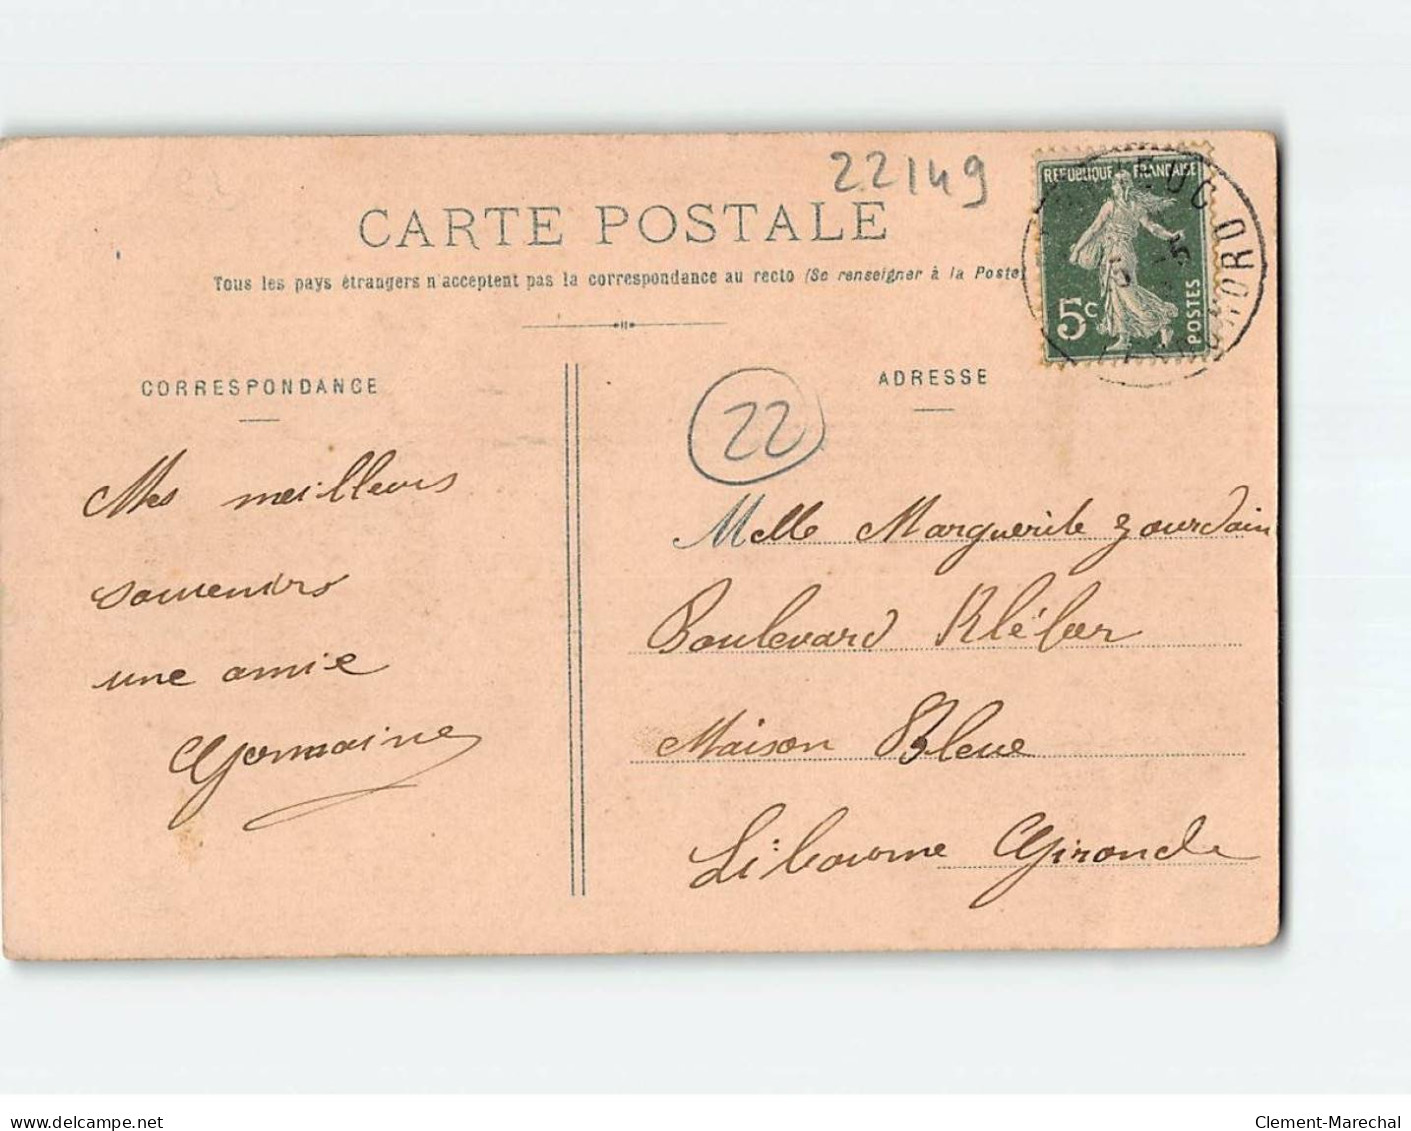 22149
CARTE POSTALE
Tous les pays étrangers n'acceptent pas la correspondance au recto (Se renseigner à la Poste)
REPUBLIQUE FRANÇAISE
5c
POSTES
CORRESPONDANCE
ADRESSE
22
Mes meilleurs
souvenirs
une amie
Germaine
Melle Marguerite Jourdain
Boulevard Kléber
Maison Bleue
Libourne Gironde
www.delcampe.net
Clement-Marechal